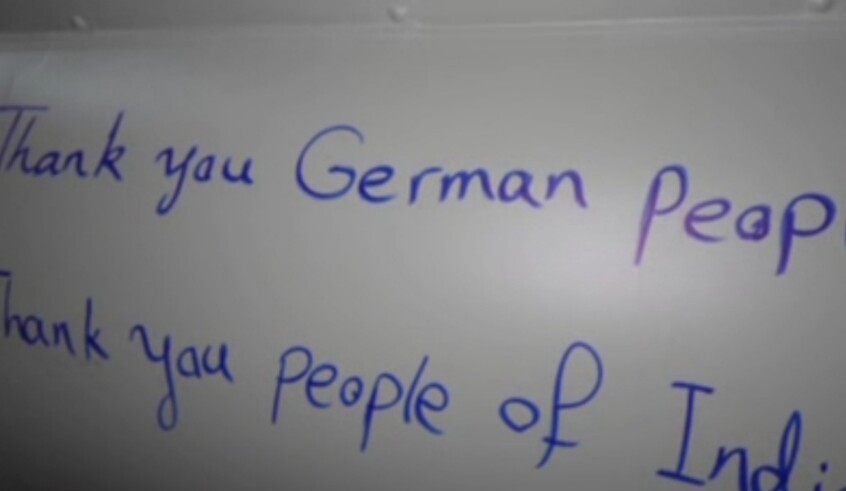 Thank you German Peop
Thank you People of Indi